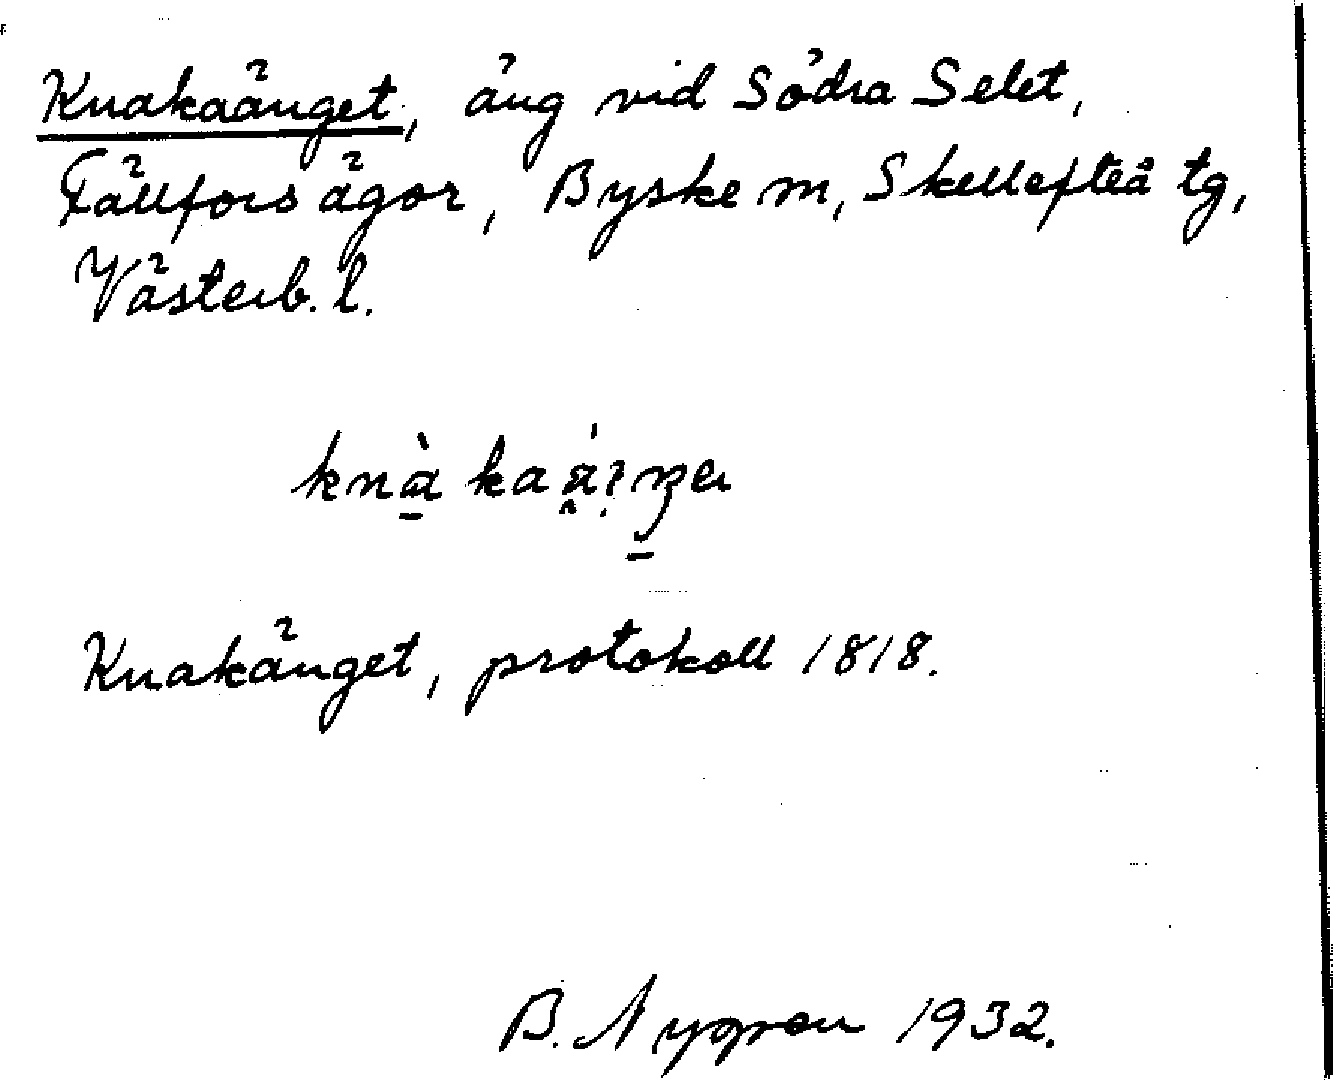 Knakaänget, äng vid Södra Selet,
Fällfors ägor, Byske m, Skellefteå tg,
Västerb. l.
Knakänget, protokoll 1818.
B. Nygren 1932.